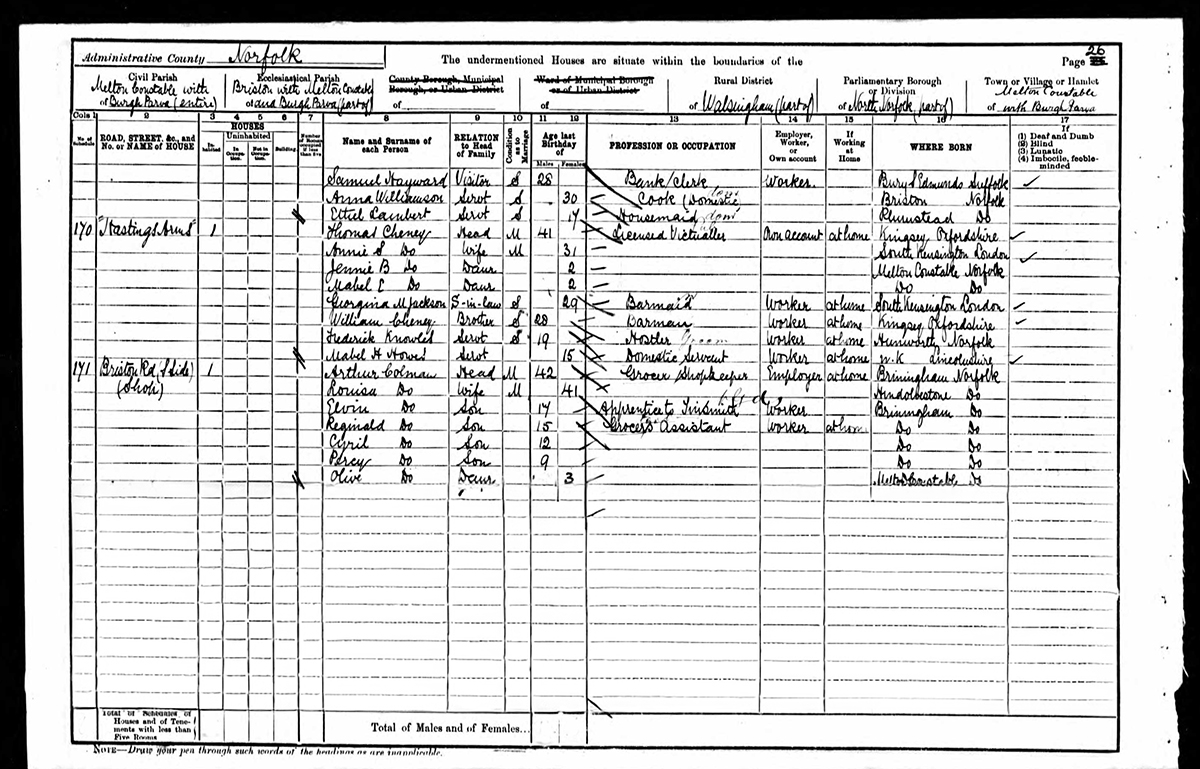 Administrative County Norfolk
The undermentioned Houses are situate within the boundaries of the
26
Page
Civil Parish
Melton Constable with
of Burgh Parva (entire)
Ecclesiastical Parish
Briston with Melton Constable
of and Burgh Parva (part of)
County Borough, Municipal
Borough, or Urban District
of
Ward of Municipal Borough
or of Urban District
of
Rural District
of Walsingham (part of)
Parliamentary Borough
or Division
of North Norfolk (part of)
Town or Village or Hamlet
Melton Constable
of with Burgh Parva
Cols 1 2 3 4 5 6 7 8 9 10 11 12 13 14 15 16 17
No. of Schedule
ROAD, STREET, &c., and No. or NAME of HOUSE
HOUSES
Inhabited
Uninhabited
In Occupation.
Not in Occupation.
Building
Number of Rooms occupied if less than five
Name and Surname of each Person
RELATION to Head of Family
Condition as to Marriage
Age last Birthday of
Males Females
PROFESSION OR OCCUPATION
Employer, Worker, or Own account
If Working at Home
WHERE BORN
If
(1) Deaf and Dumb
(2) Blind
(3) Lunatic
(4) Imbecile, feeble-minded
Samuel Hayward Visitor S 28 Bank Clerk Worker. Bury St Edmunds Suffolk
Anna Williamson Servt S 30 Cook (Domestic) Briston Norfolk
Ethel Lambert Servt S 17 Housemaid Plumstead Do
170 "Hastings Arms" 1 Thomas Cheney Head M 41 Licensed Victualler Own account at home Kingsey Oxfordshire
Annie S Do Wife M 31 South Kensington London
Jennie B Do Daur 2 Melton Constable Norfolk
Mabel L Do Daur 2 Do Do
Georgina M Jackson S-in-law S 29 Barmaid Worker at home South Kensington London
William Cheney Brother S 28 Barman Worker at home Kingsey Oxfordshire
Frederik Knowles Servt S 19 Hostler Groom Worker at home Hunworth Norfolk
Mabel H Howes Servt 15 Domestic Servant Worker at home N.K Lincolnshire
171 Briston Rd. (S side) 1 Arthur Colman Head M 42 Grocer Shopkeeper Employer at home Briningham Norfolk
(Shop) Louisa Do Wife M 41 Hindolvestone Do
Elvin Do Son 17 Apprentice to Tinsmith Worker Briningham Do
Reginald Do Son 15 Grocer's Assistant Worker at home Do Do
Cyril Do Son 12 Do Do
Percy Do Son 9 Do Do
Olive Do Daur 3 Melton Constable Do
Total of Schedules of Houses and of Tenements with less than Five Rooms
Total of Males and of Females...
NOTE—Draw your pen through such words of the headings as are inapplicable.